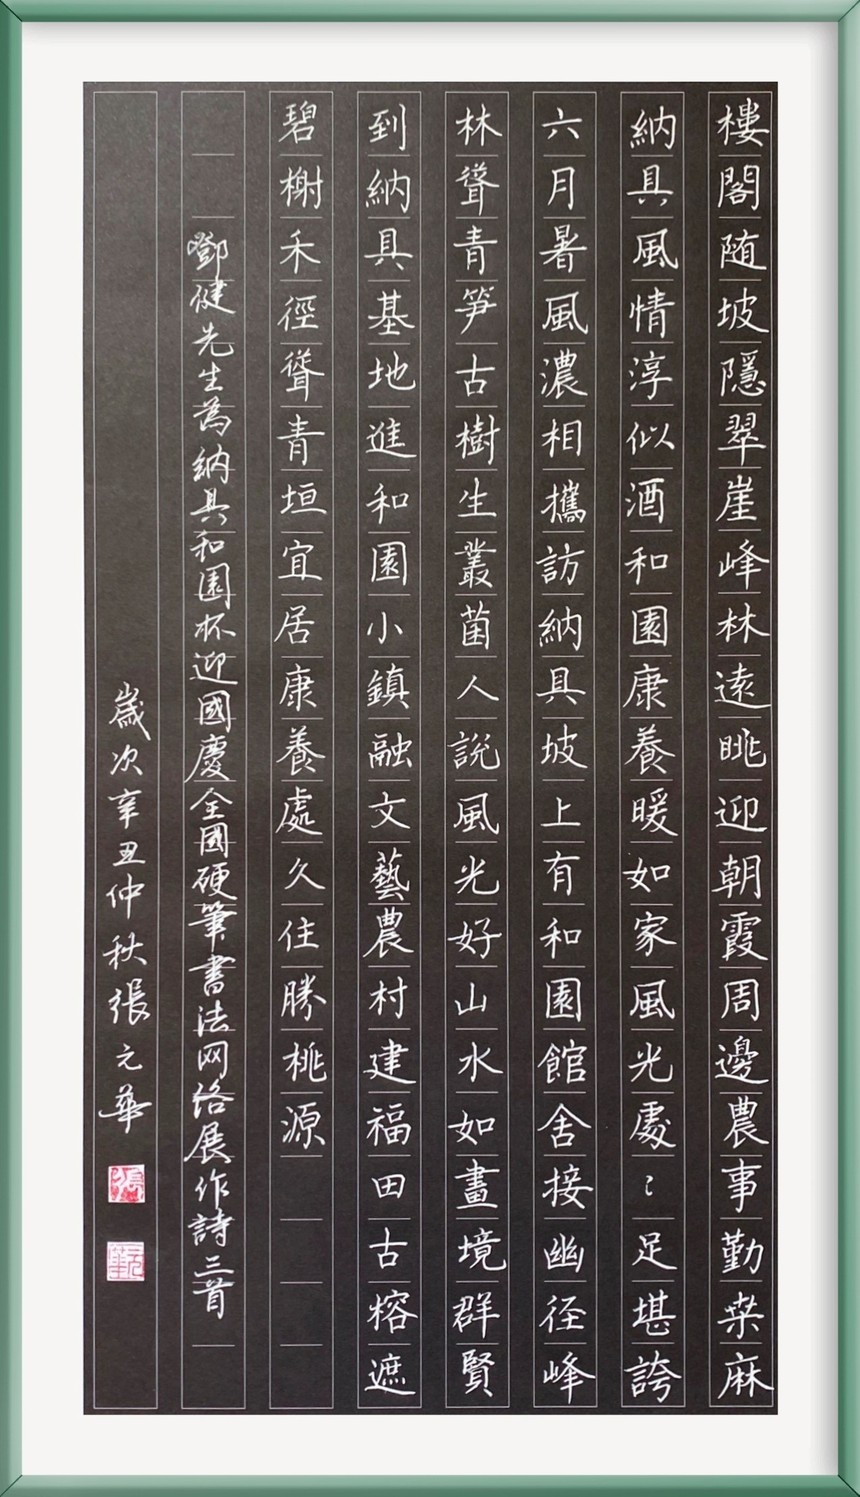 樓閣随坡隱翠崖峰林遠眺迎朝霞周邊農事勤桒麻
納具風情淳似酒和園康養暖如家風光處〻足堪誇
六月暑風濃相攜訪納具坡上有和園館舍接幽径峰
林聳青笋古樹生叢菌人說風光好山水如畫境群賢
到納具基地進和園小鎮融文藝農村建福田古榕遮
碧榭禾徑聳青垣宜居康養處久住勝桃源
鄧健先生為納具和園杯迎國慶全國硬筆書法网络展作詩三首
歲次辛丑仲秋張元華
張
元華